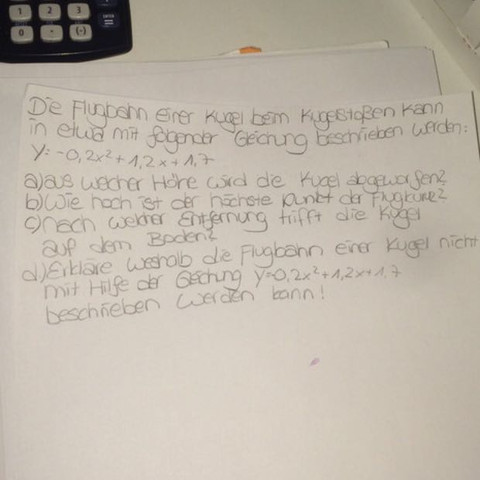 1 2 3
0 · (-) =
Die Flugbahn einer Kugel beim Kugelstoßen kann
in etwa mit folgender Gleichung beschrieben werden:
y=-0,2x²+1,2x+1,7
a) aus welcher Höhe wird die Kugel abgeworfen?
b) Wie hoch ist der höchste Punkt der Flugkurve?
c) Nach welcher Entfernung trifft die Kugel
auf dem Boden?
d) Erkläre weshalb die Flugbahn einer Kugel nicht
mit Hilfe der Gleichung y=0,2x²+1,2x+1,7
beschrieben werden kann!